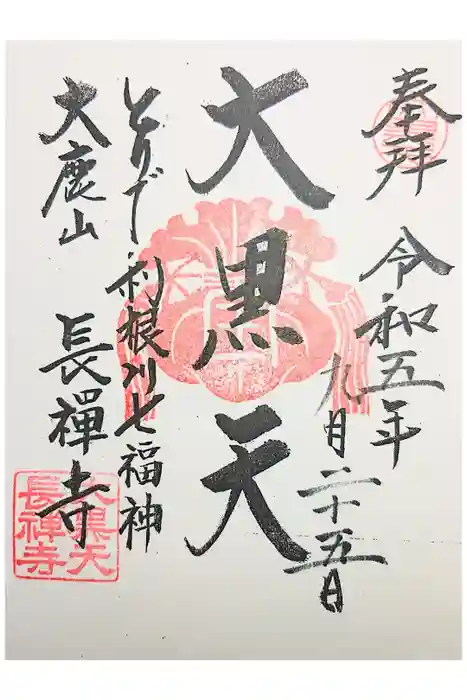 奉拝
令和五年
九月二十五日
大黒天
とりで利根川七福神
大鹿山
長禪寺
大黒天
長禅寺